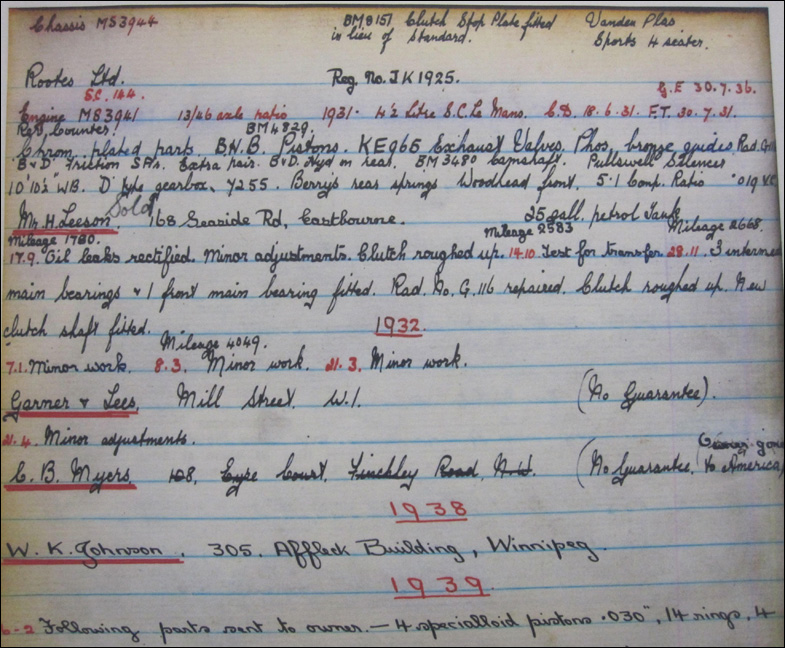 Chassis MS3944 BM8157 Clutch Stop Plate fitted Vanden Plas
in lieu of standard. Sports 4 seater.
Rootes Ltd. Reg. No. JK1925.
S.C. 144. G.E 30.7.36.
Engine MS3941 13/46 axle ratio 1931. 4½ Litre S.C. Le Mans. C.D. 18.6.31. F.T. 30.7.31.
Rev. Counter. BM4829.
Chrom. plated parts. B.H.B. Pistons. KE965 Exhaust Valves. Phos. bronze guides. Rad. G116
B & D Friction S.A's. Extra pair. B & D. Hyd on rear. BM3480 Camshaft. Pullswell Silencer
10'10½" WB. "D" type gearbox. Y255. Berry's rear springs Woodhead front. 5.1 Comp. Ratio .019 V.C
Sold
Mr. H. Leeson. 168 Seaside Rd, Eastbourne. 25 gall. petrol Tank
Mileage 1780. Mileage 2583 Mileage 2668.
17.9. Oil leaks rectified. Minor adjustments. Clutch roughed up. 14.10 Test for transfer. 28.11. 3 interme
main bearings & 1 front main bearing fitted. Rad. No. G.116 repaired. Clutch roughed up. New
clutch shaft fitted. 1932.
Mileage 4049.
7.1. Minor work. 8.3. Minor work. 21.3. Minor work.
Garner & Lees. Mill Street. W.1. (No Guarantee).
21.4. Minor adjustments.
C. B. Myers. 108, Eyre Court, Finchley Road, N.W. (No Guarantee. gone
to America)
1938
W. K. Johnson. 305. Affleck Building, Winnipeg.
1939.
6-2 Following parts sent to owner. — 4 specialloid pistons .030", 14 rings, 4